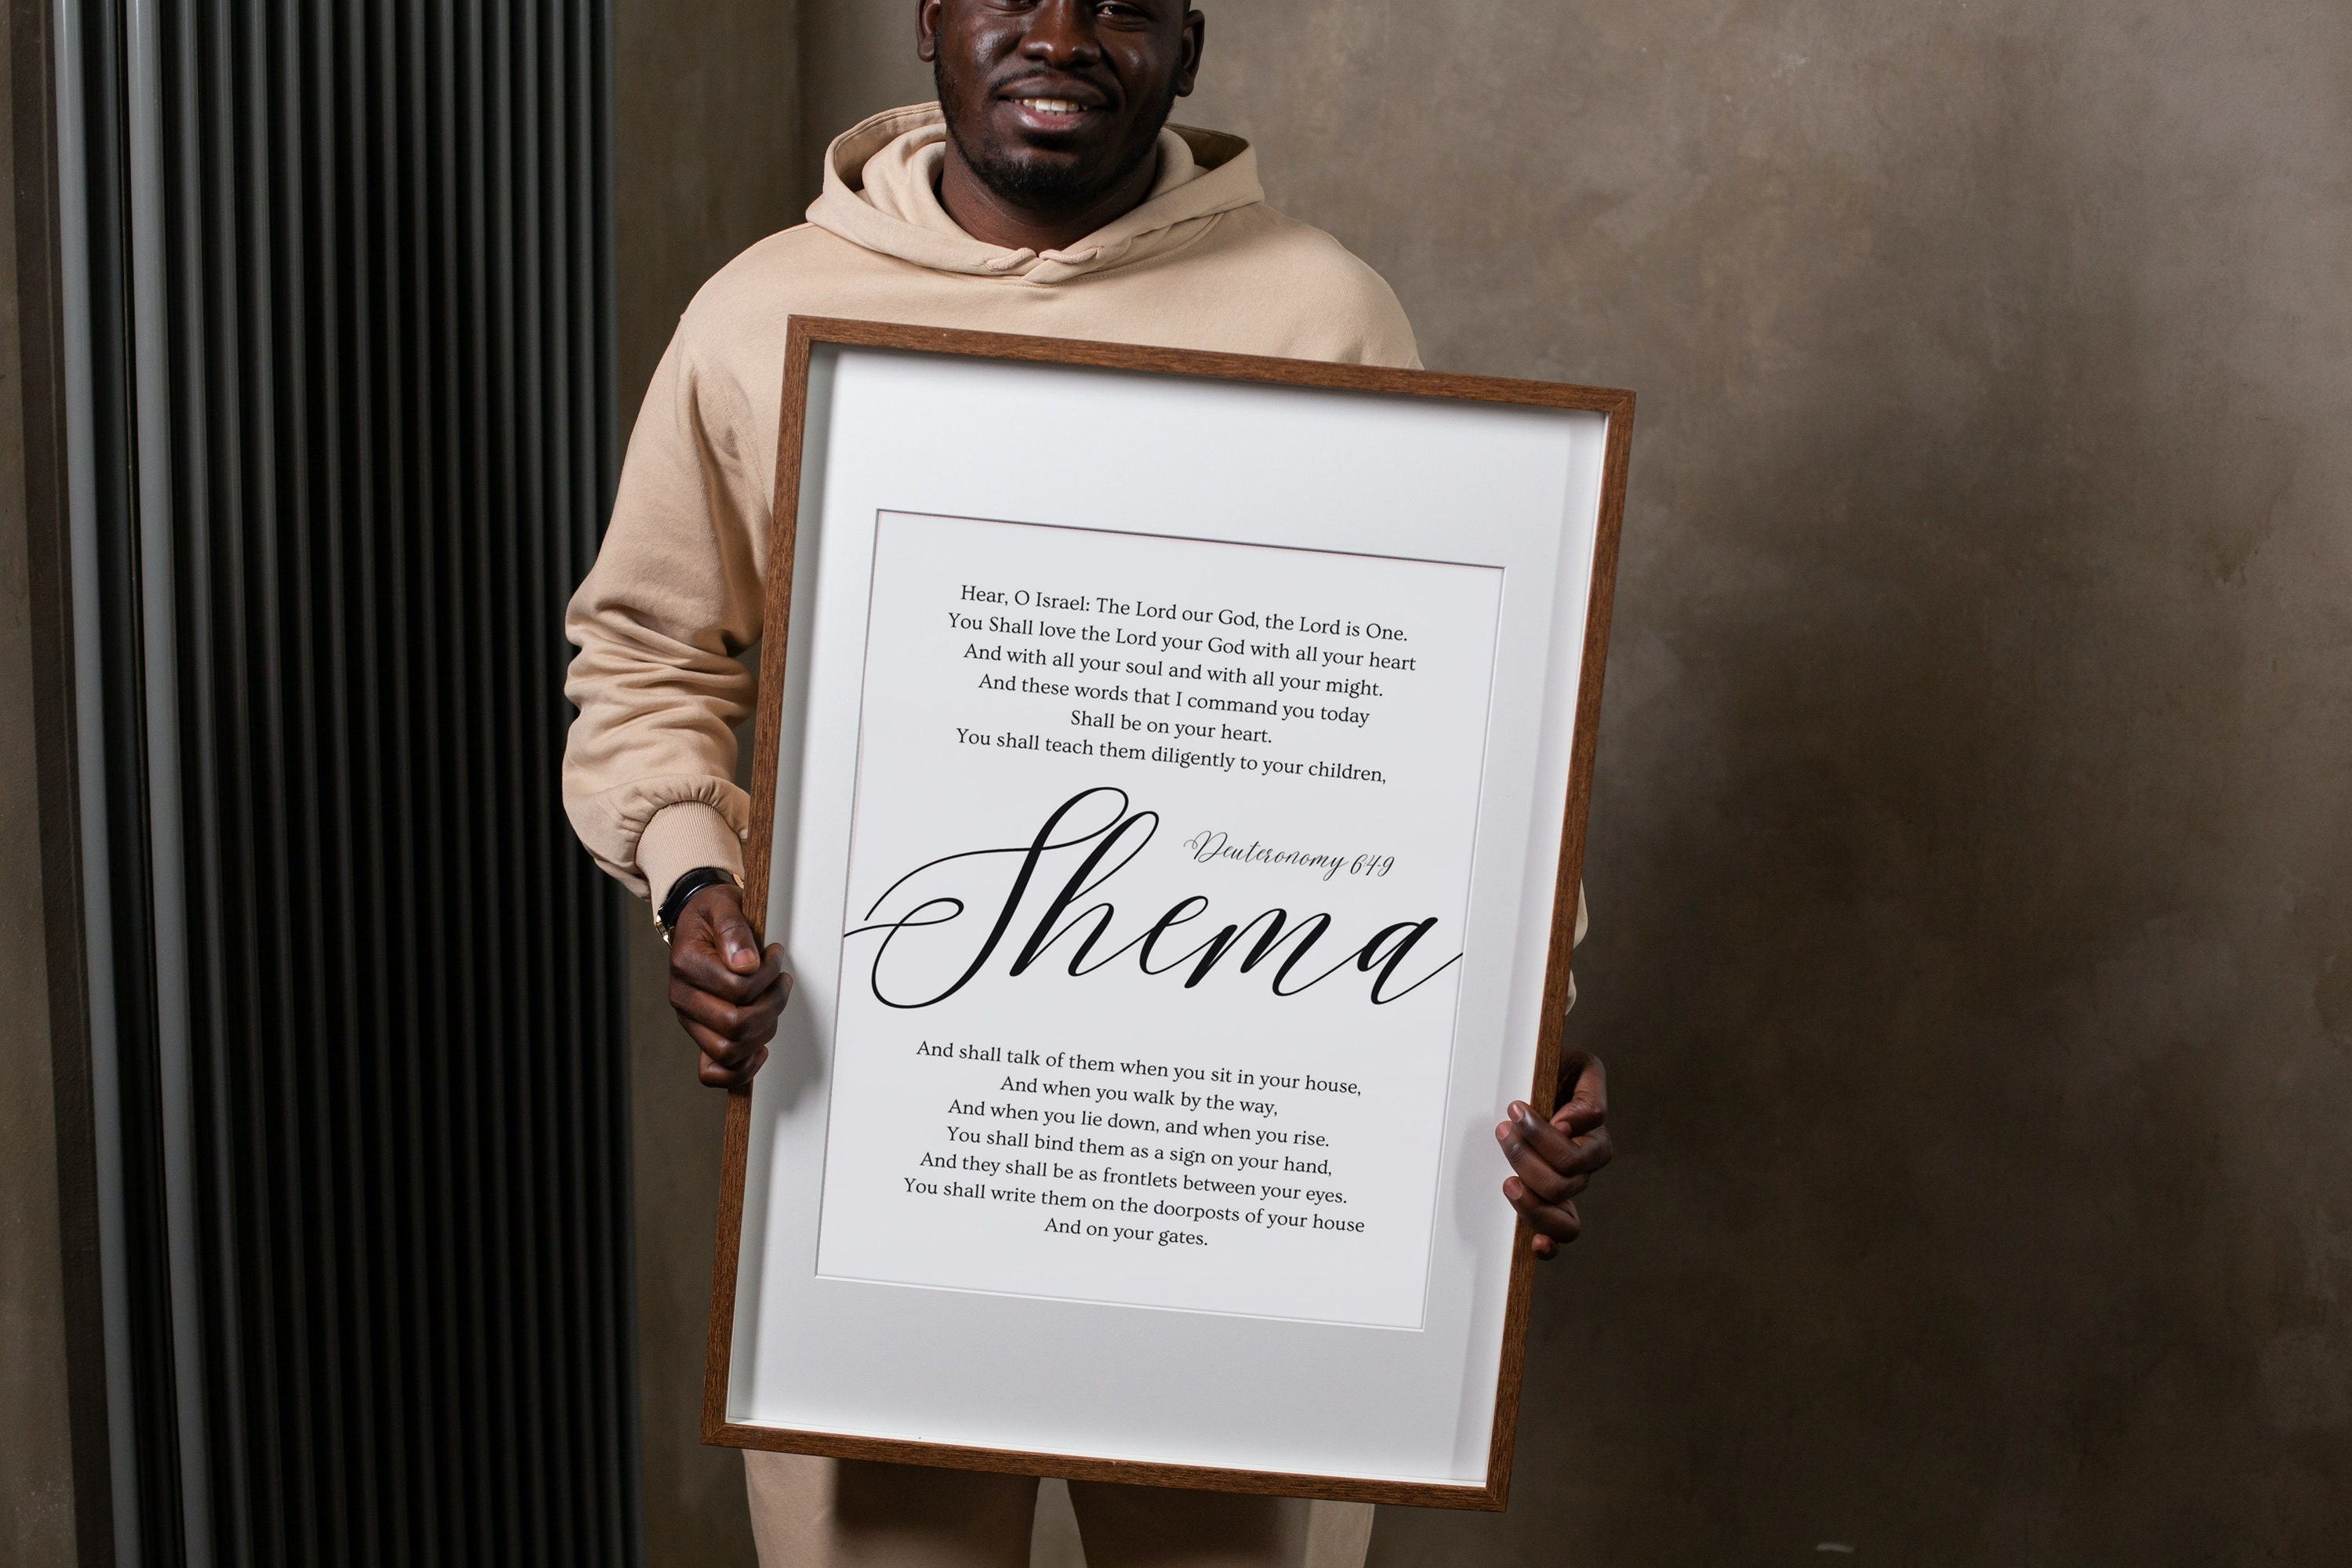 Hear, O Israel: The Lord our God, the Lord is One.
You Shall love the Lord your God with all your heart
And with all your soul and with all your might.
And these words that I command you today
Shall be on your heart.
You shall teach them diligently to your children,
Deuteronomy 6:4-9
Shema
And shall talk of them when you sit in your house,
And when you walk by the way,
And when you lie down, and when you rise.
You shall bind them as a sign on your hand,
And they shall be as frontlets between your eyes.
You shall write them on the doorposts of your house
And on your gates.